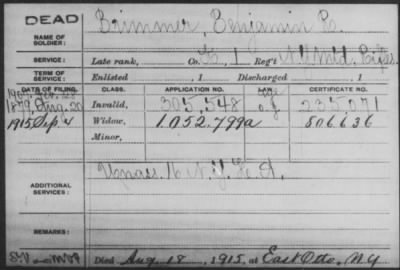 DEAD
NAME OF SOLDIER: Brimmer, Benjamin
SERVICE: Late rank, Co. 1 Reg't N.Y. Mtd. Rifles
TERM OF SERVICE: Enlisted , 1 Discharged , 1
DATE OF FILING. CLASS. APPLICATION NO. CERTIFICATE NO.
1879, Aug. 20 Invalid, 305,548 235,071
1915 Sep. 4 Widow, 1.052.799a 806636
Minor,
ADDITIONAL SERVICES: 16 N.Y.
REMARKS:
Died Aug 18, 1915, at East Otto, N.Y.